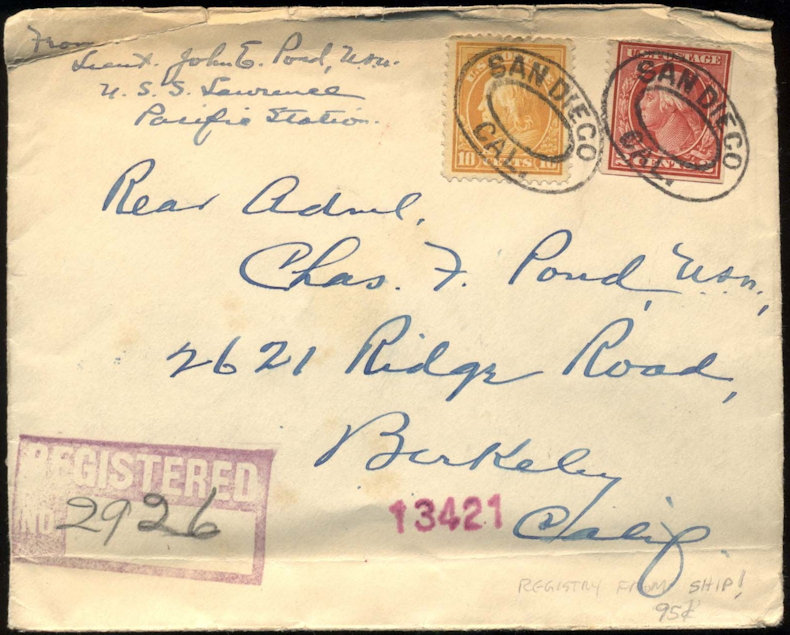 From
Lieut. John E. Pond, USN.
U.S.S. Lawrence
Pacific Station.
10 CENTS 10
SAN DIEGO
CAL.
U.S. POSTAGE
SAN DIEGO
CAL.
Rear Adml.
Chas. F. Pond, USN.,
2621 Ridge Road,
Berkeley
Calif.
REGISTERED
NO. 2926
13421
REGISTRY FROM SHIP!
95¢